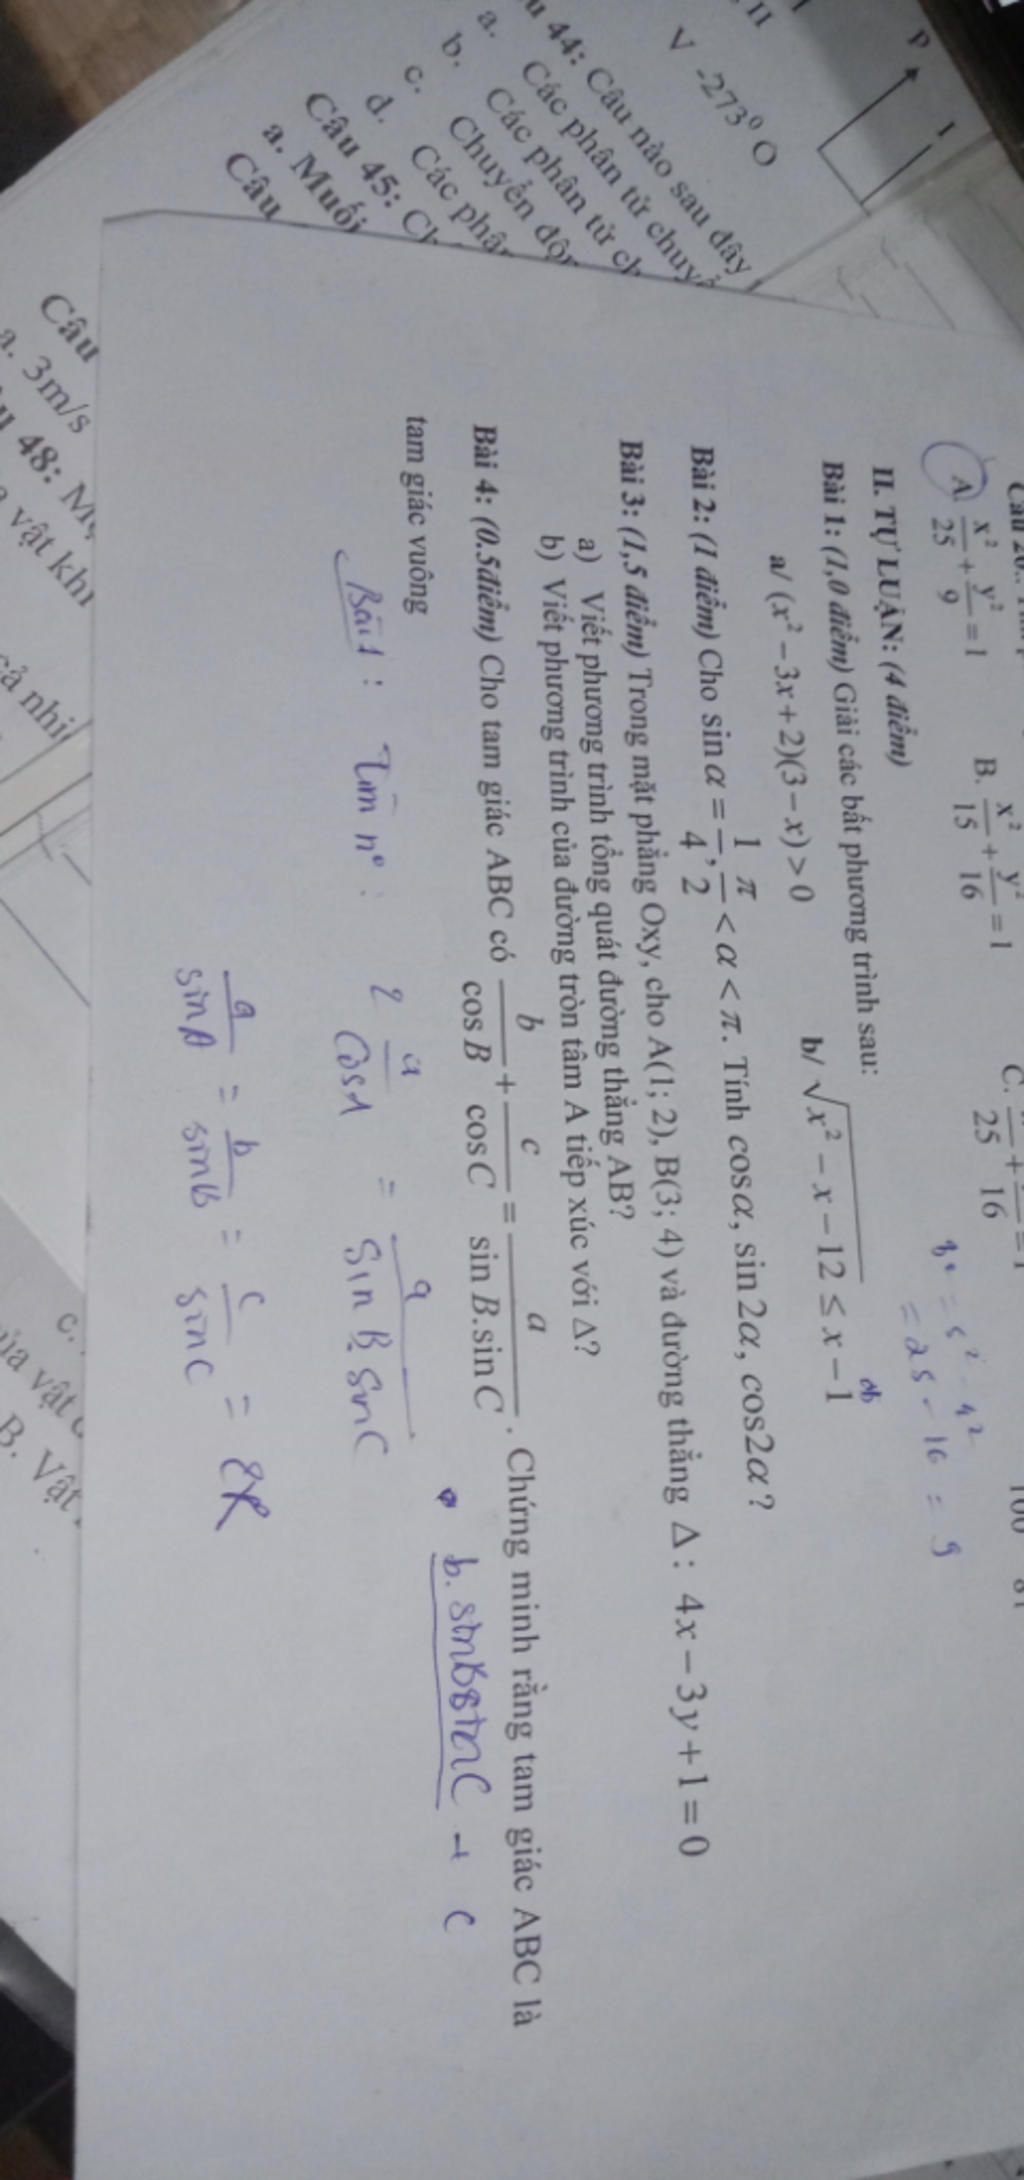 A. x²/25 + y²/9 = 1 B. x²/15 + y²/16 = 1 C.
II. TỰ LUẬN: (4 điểm)
Bài 1: (1,0 điểm) Giải các bất phương trình sau:
a/ (x² − 3x + 2)(3 − x) > 0 b/ √(x² − x − 12) ≤ x − 1
= 25 - 16 = 9
Bài 2: (1 điểm) Cho sin α = 1/4, π/2 < α < π. Tính cosα, sin 2α, cos2α ?
Bài 3: (1,5 điểm) Trong mặt phẳng Oxy, cho A(1; 2), B(3; 4) và đường thẳng Δ: 4x − 3y + 1 = 0
a) Viết phương trình tổng quát đường thẳng AB?
b) Viết phương trình của đường tròn tâm A tiếp xúc với Δ?
Bài 4: (0.5điểm) Cho tam giác ABC có b/cos B + c/cos C = a/(sin B.sin C). Chứng minh rằng tam giác ABC là
tam giác vuông
b. sinBsinC + c
Bài 1: Tìm n°: 2 a/cosA = a/(sin B. sinC)
a/sinA = b/sinB = c/sinC = 2R
P
1
V -273⁰ O
44: Câu nào sau đây
a. Các phân tử chuyể
b. Các phân tử ch
c. Chuyển độn
d. Các phân
Câu 45: Ch
a. Muối
Câu
Câu
a. 3m/s
48: M
vật khi
cả nhi
c.
ủa vật
B. Vật